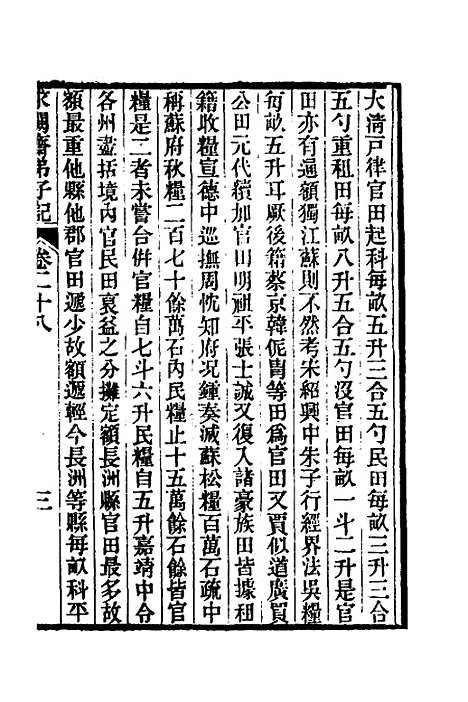 大淸戸律官田起科每畝五升三合五勺民田每畝三升三合
五勺重租田每畝八升五合五勺沒官田每畝一斗二升是官
田亦有逼額獨江蘇則不然考宋紹興中朱子行經界法吳糧
每畝五升耳厥後籍蔡京韓侂冑等田爲官田又賈似道廣買
公田元代續加官田明祖平張士誠又復入諸豪族田皆據租
籍收糧宣德中巡撫周忱知府况鍾奏減蘇松糧百萬石疏中
稱蘇府秋糧二百七十餘萬石内民糧止十五萬餘石餘皆官
糧是二者未嘗合倂官糧自七斗六升民糧自五升嘉靖中令
各州盡括境内官民田裒益之分攤定額長洲縣官田最多故
額最重他縣他郡官田遞少故額遞輕今長洲等縣每畝科平
求闕齋弟子記 卷二十八 三